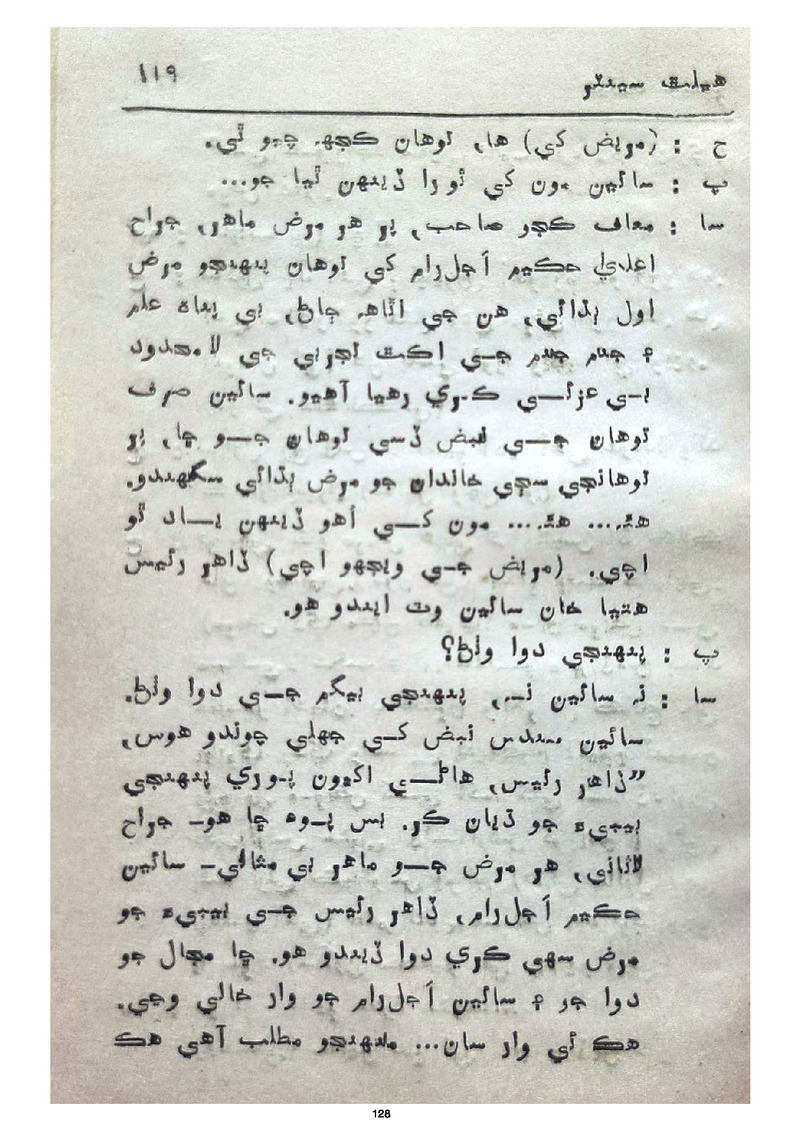 هيلٿ سينٽر ١١٩
ح : (مريض کي) ها، توهان ڪجهہ چيو ٿي.
پ : سائين مون کي ٿورا ڏينهن ٿيا جو...
سا : معاف ڪجو صاحب، پر هر مرض ماهر، جراح
اعليٰ حڪيم اَجل رام کي توهان پنهنجو مرض
اول ٻڌائي، هن جي اڻاهہ ڄاڻ، بي پناه علم
۽ جنم جنم جي اڪٿ تجربي جي لامحدود
بي عزتي ڪري رهيا آهيو. سائين صرف
توهان جي نبض ڏسي توهان جو ڇا، پر
توهانجي سڄي خاندان جو مرض ٻڌائي سگهندو.
هئہ... هئہ... مون کي اُهو ڏينهن ياد ٿو
اچي. (مريض جي ويجهو اچي) ڏاهر رئيس
هتيا خان سائين وٽ ايندو هو.
پ : پنهنجي دوا وٺڻ؟
سا : نہ سائين نہ، پنهنجي بيگم جي دوا وٺڻ.
سائين سندس نبض کي جهلي چوندو هوس،
”ڏاهر رئيس، هاڻي اکيون پوري پنهنجي
بيبيءَ جو ڌيان ڪر. بس پوه ڇا هو۔ جراح
لاثاني، هر مرض جو ماهر بي مثالي۔ سائين
حڪيم اَجل رام، ڏاهر رئيس جي بيبيءَ جو
مرض سهي ڪري دوا ڏيندو هو. ڇا مجال جو
دوا جر ۽ سائين اَجل رام جو وار خالي وڃي.
هڪ ئي وار سان... منهنجو مطلب آهي هڪ
128